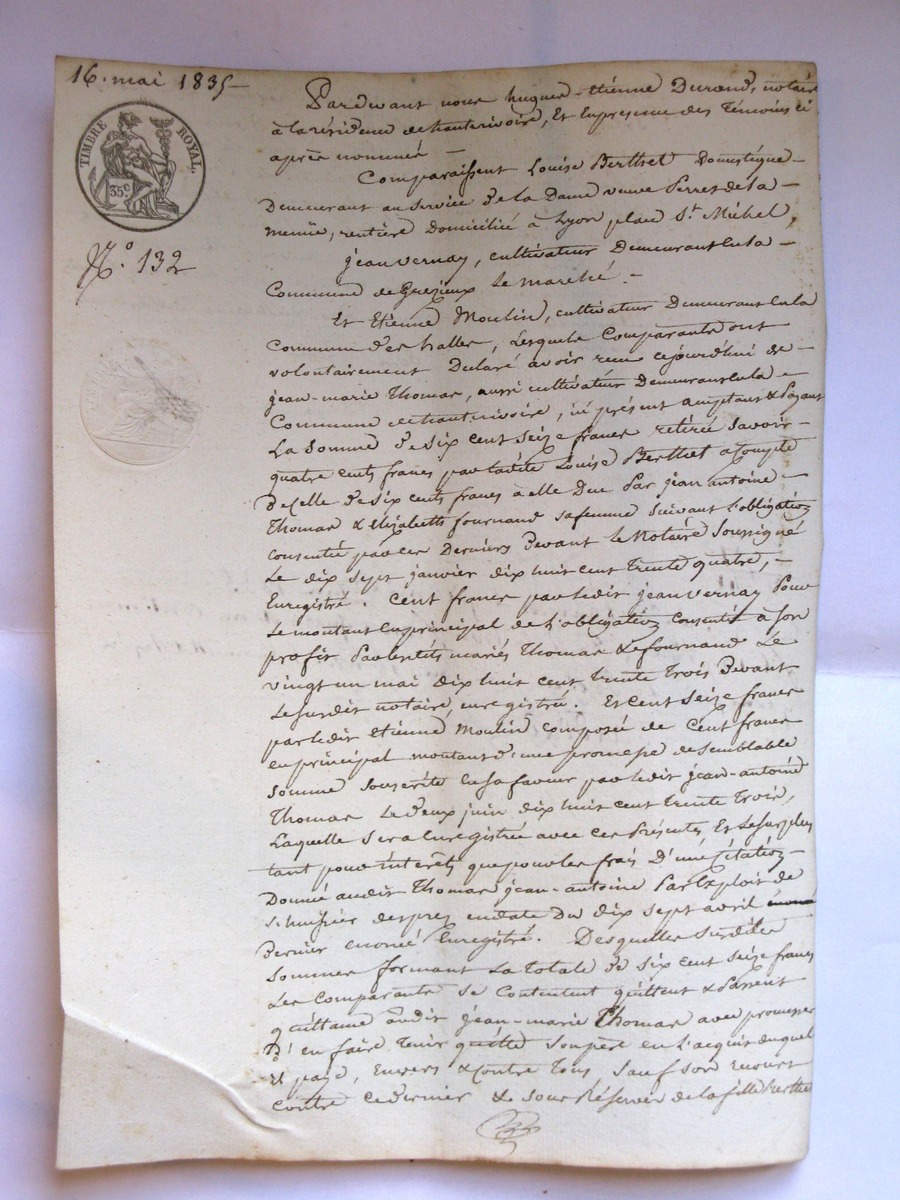 16. mai 1835
TIMBRE ROYAL.
35c
N.º 132
Pardevant nous hugues-etienne Durand, notaire
à la résidence de hauterivoire, Et En presence des Témoins ci
après nommés
Comparaissent Louise Berthet Domestique
Demeurant au service de la Dame veuve Perret de la
menue, rentière Domicilié à Lyon place St. Michel,
jean vernay, cultivateur Demeurant En la
Commune de Grezieux Le marché.
Et Etienne Moulin, cultivateur Demeurant En la
Commune des halles, Lesquels Comparants ont
volontairement Déclaré avoir recu cejourd'hui de
jean-marie Thomas, aussi cultivateur Demeurant En la
Commune de hauterivoire, ici présent acceptant & Payant
La Somme de Six Cent Seize francs retirée Savoir
quatre cents francs par ladite Louise Berthet acompte
de Celle de Six Cents francs à elle Due Par jean antoine
Thomas & Elizabeth fournand sa femme Suivant l'obligation
Consentie par ces Derniers Devant le Notaire Soussigné
Le dix Sept janvier dix huit cent Trente quatre,
Enregistré. Cent francs par ledit jean vernay Pour
Le montant En principal de L'obligation Consentie à Son
profit Par lesdits mariés Thomas & fournand Le
vingt un mai Dix huit Cent trente Trois Devant
Lesusdit notaire, enregistré. Et Cent Seize francs
par ledit etienne Moulin composée de Cent francs
en principal montant d'une promesse de Semblable
Somme Souscrite En sa faveur par ledit jean-antoine
Thomas Le deux juin dix huit cent trente Trois,
Laquelle Sera Enregistrée avec ces Présentes, Et Le surplus
tant pour intérêts que pour les frais D'une Citation
Donnée audit Thomas jean-antoine Par Exploit de
L'huissier desprez en date Du dix Sept avril
Dernier Enregistré. Desquelles Susdites
Sommes formant La totale de Six Cent Seize francs
Les Comparants Se Contentent quittent & Passent
quittance audit jean-marie Thomas avec promesse
D'en faire Tenir quitte Son père en L'acquit duquel
Il paye, Envers & Contre Tous Sauf Son recours
Contre ce dernier & Sous Réserves de la fille Berthet